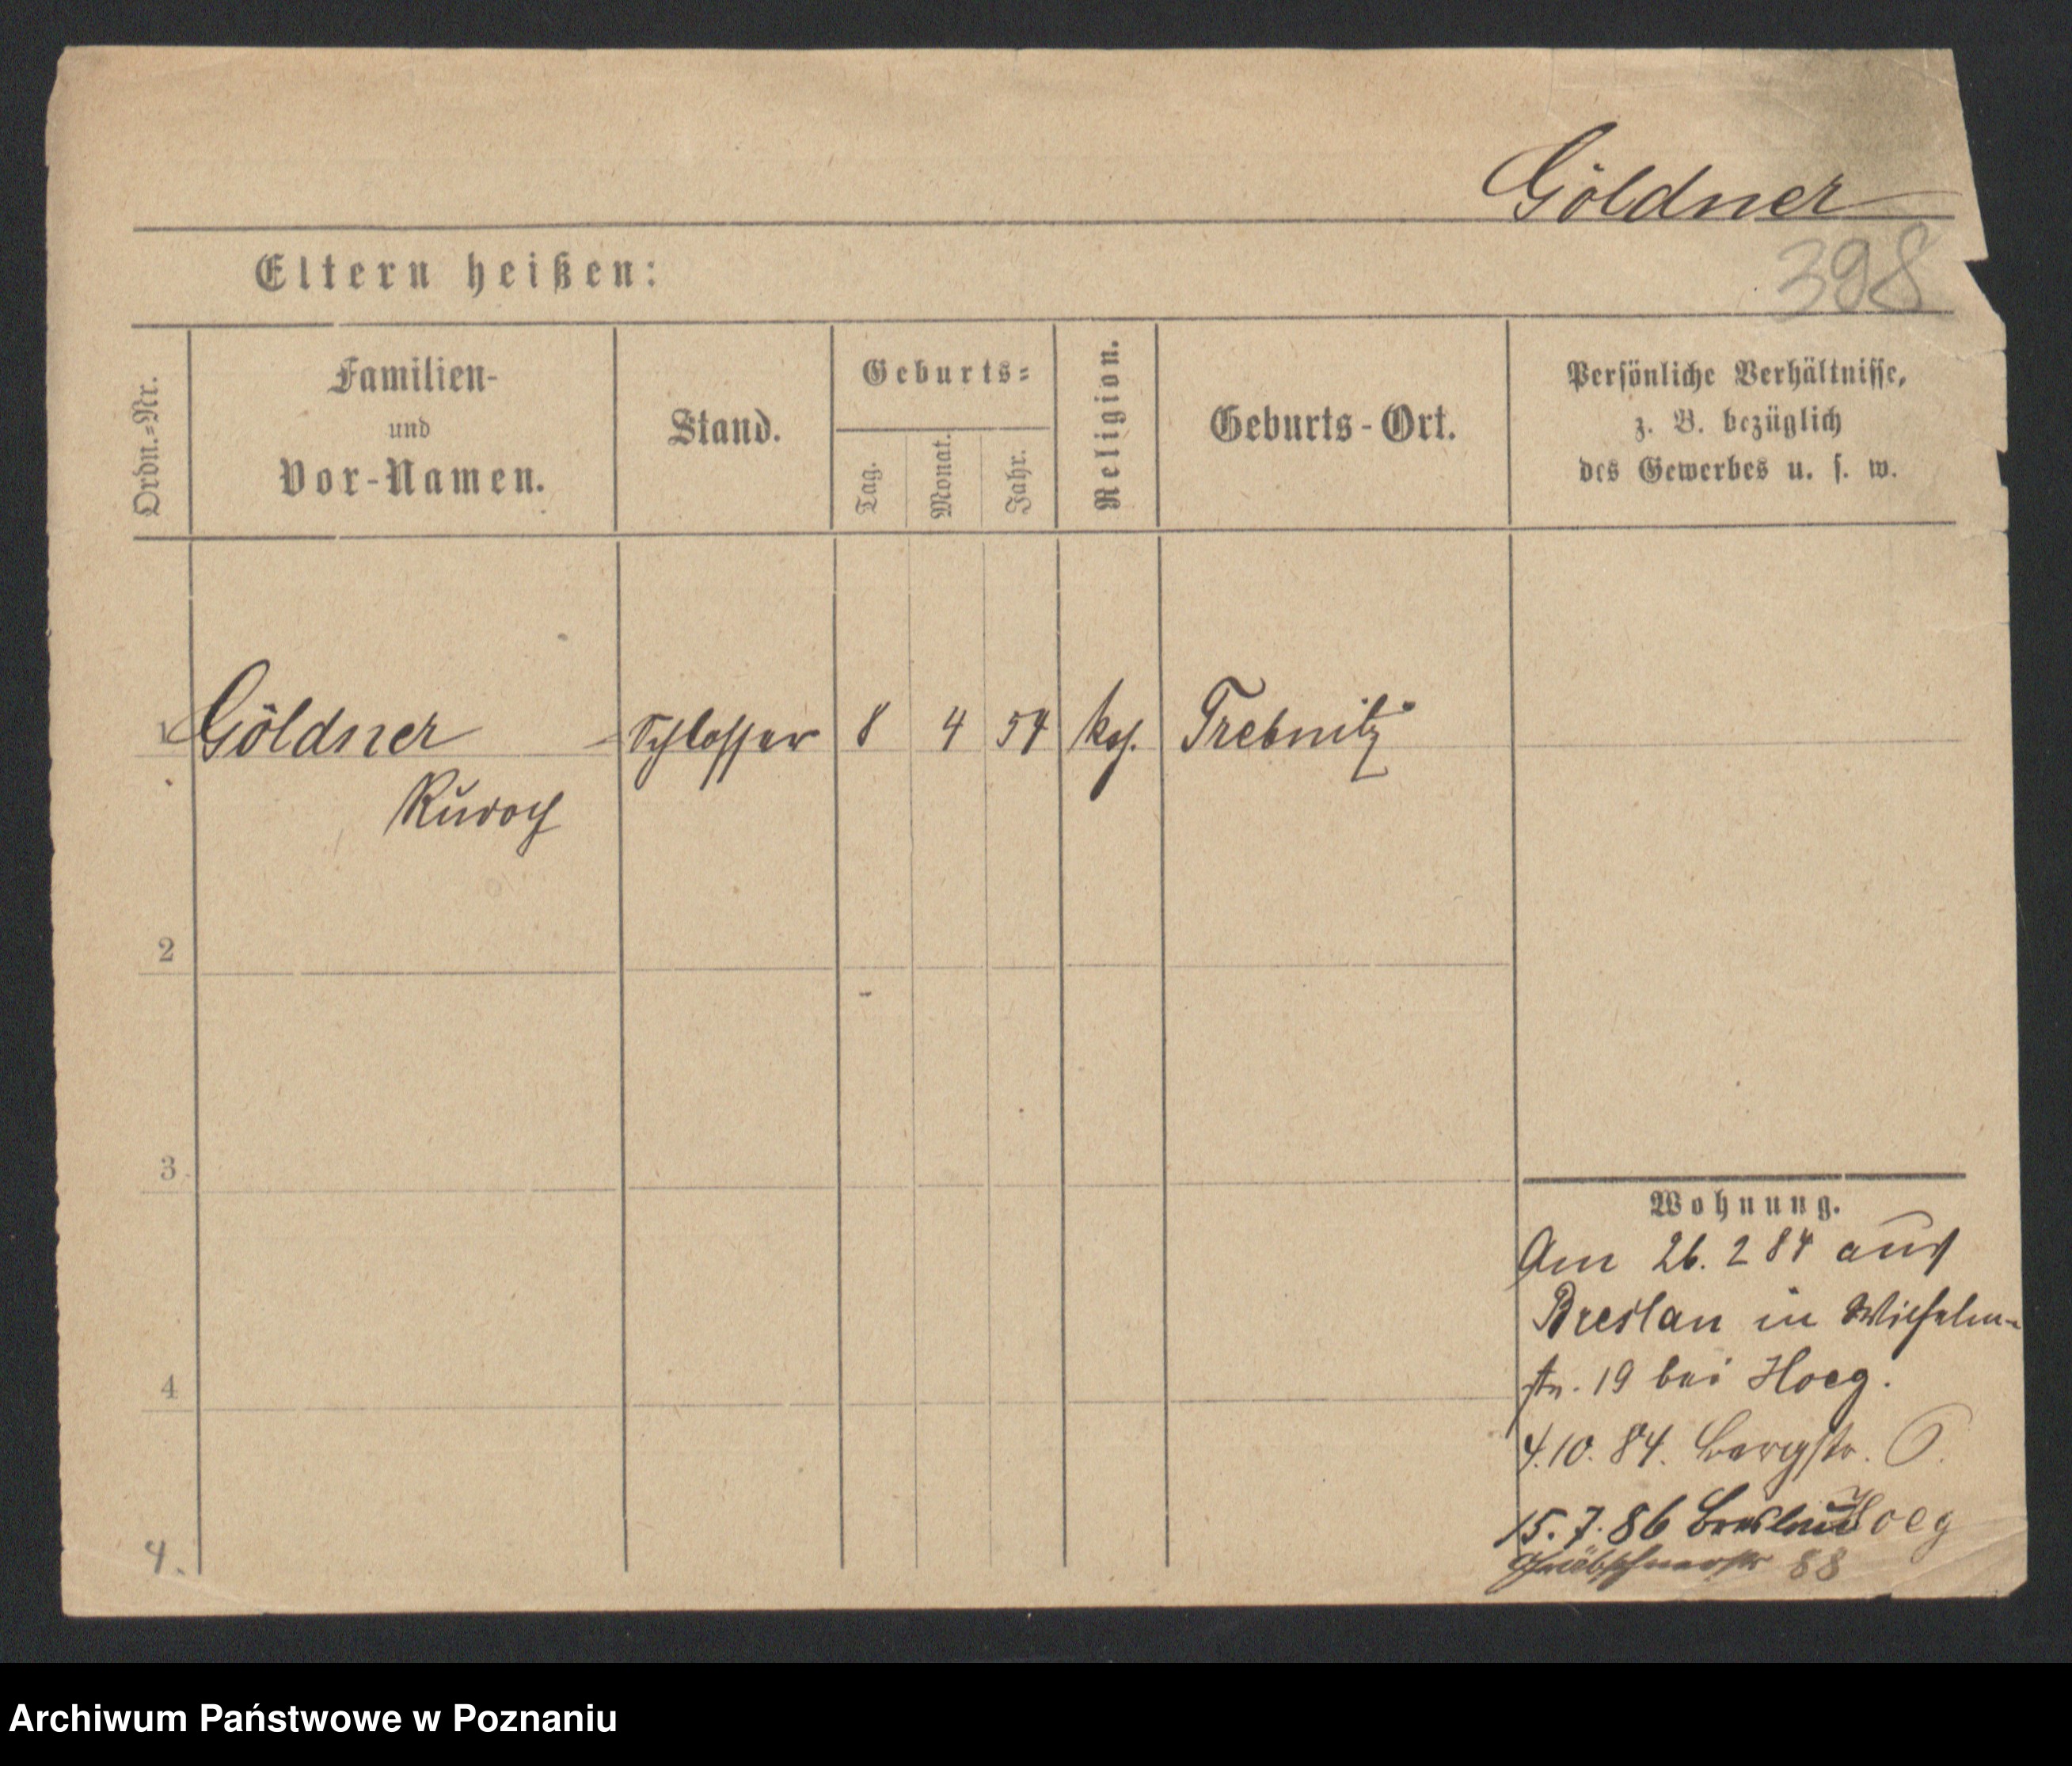 Göldner
398
Eltern heißen:
Ordn.-Nr.
Familien-
und
Vor-Namen.
Stand.
Geburts-
Tag.
Monat.
Jahr.
Religion.
Geburts-Ort.
Persönliche Verhältnisse,
z. B. bezüglich
des Gewerbes u. s. w.
1 Göldner Schlosser 8 4 54 Trebnitz
2
3
4
Wohnung.
Am 26. 2 84 aus
Breslau in Wilhelm-
str. 19 bei Hoeg.
4.10.84. Bergstr. 6.
Hoeg
15.7.86 Breslau
88
4.
Archiwum Państwowe w Poznaniu